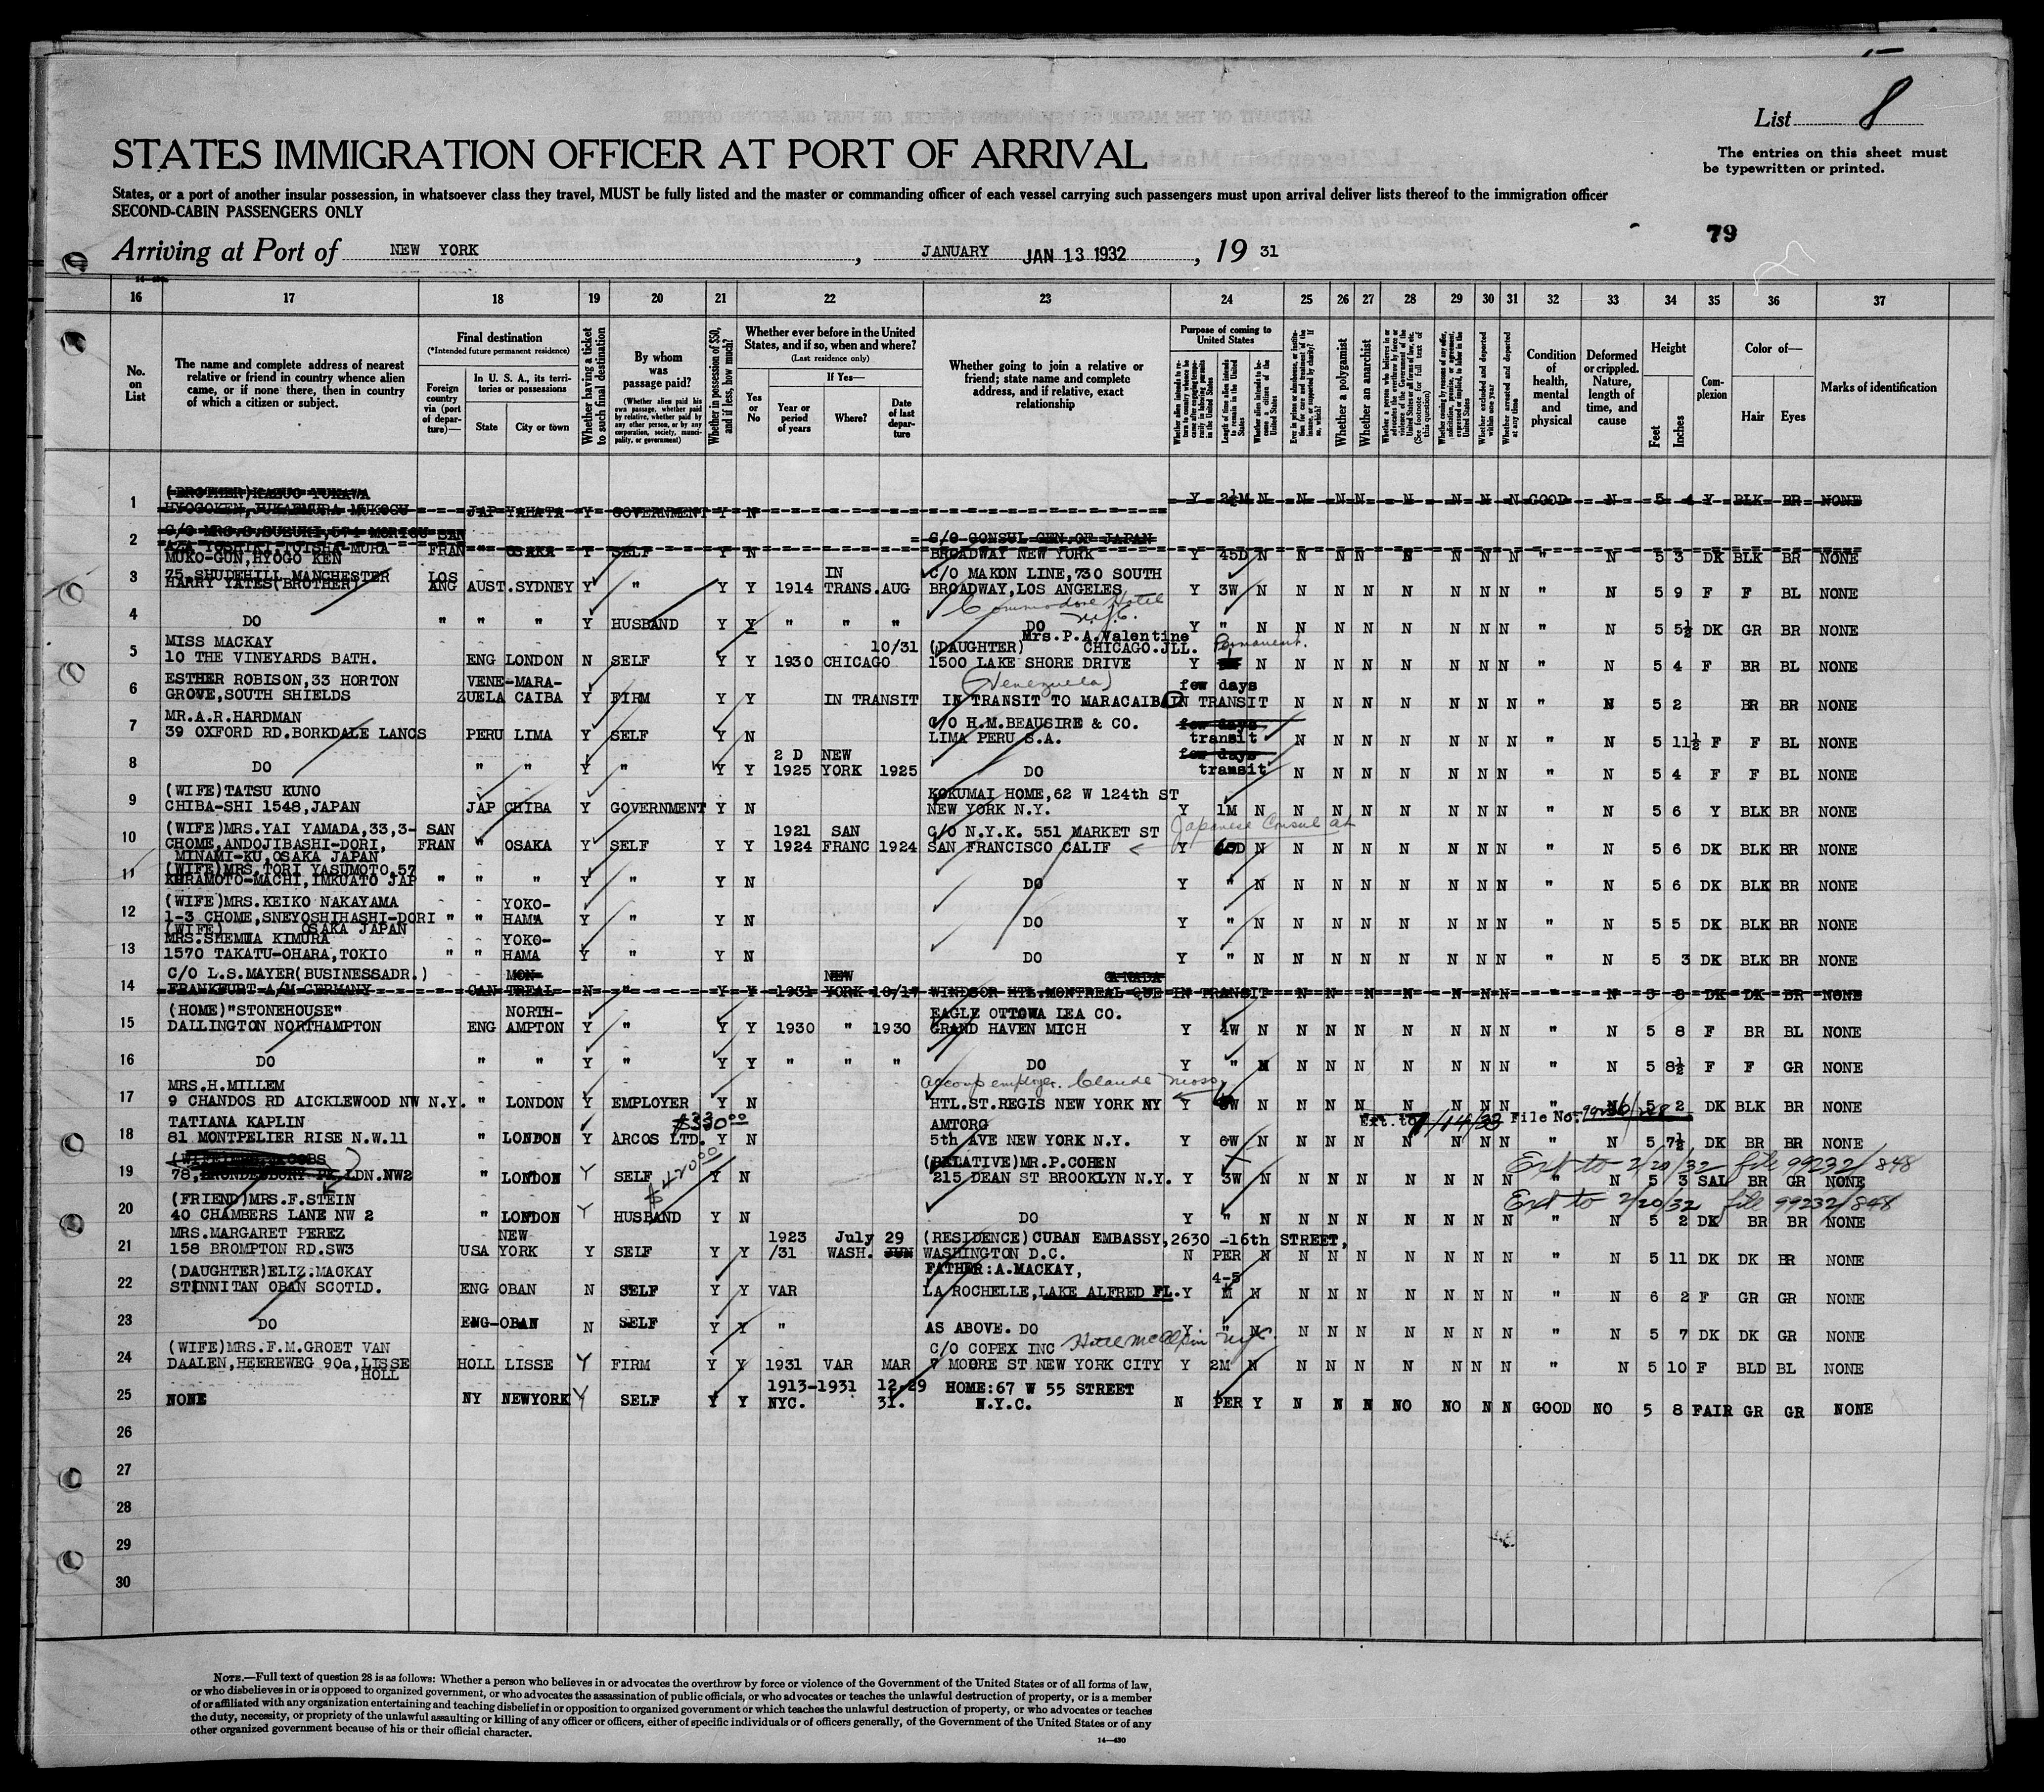 List 8
STATES IMMIGRATION OFFICER AT PORT OF ARRIVAL
The entries on this sheet must
be typewritten or printed.
States, or a port of another insular possession, in whatsoever class they travel, MUST be fully listed and the master or commanding officer of each vessel carrying such passengers must upon arrival deliver lists thereof to the immigration officer
SECOND-CABIN PASSENGERS ONLY
79
Arriving at Port of NEW YORK, JANUARY JAN 13 1932, 19 31
16 17 18 19 20 21 22 23 24 25 26 27 28 29 30 31 32 33 34 35 36 37
No. on List
The name and complete address of nearest relative or friend in country whence alien came, or if none there, then in country of which a citizen or subject.
Final destination
(*Intended future permanent residence)
Foreign country via (port of departure)—
In U. S. A., its territories or possessions
State
City or town
Whether having a ticket to such final destination
By whom was passage paid?
(Whether alien paid his own passage, whether paid by relative, whether paid by any other person, or by any corporation, society, municipality, or government)
Whether in possession of $50, and if less, how much?
Whether ever before in the United States, and if so, when and where?
(Last residence only)
If Yes—
Yes or No
Year or period of years
Where?
Date of last departure
Whether going to join a relative or friend; state name and complete address, and if relative, exact relationship
Purpose of coming to United States
Length of time alien intends to remain in the United States
Whether alien intends to become a citizen of the United States
Whether a polygamist
Whether an anarchist
Whether excluded and deported within one year
Whether arrested and deported at any time
Condition of health, mental and physical
Deformed or crippled. Nature, length of time, and cause
Height
Feet
Inches
Complexion
Color of—
Hair
Eyes
Marks of identification
1 (BROTHER)KAZUO YUKAWA
HYOGOKEN, MUKOGU JAP YAHATA Y GOVERNMENT Y N Y 2½M N N N N N N N N GOOD N 5 4 Y BLK BR NONE
2 C/O MRS.S.SUZUKI,574 MORIGU SAN C/O CONSUL GEN.OF JAPAN
MURA FRAN " OSAKA Y SELF Y N BROADWAY NEW YORK Y 45D N N N N N N N N " N 5 3 DK BLK BR NONE
MUKO-GUN,HYOGO KEN
3 75 SHUDEHILL MANCHESTER LOS IN C/O MAKON LINE,730 SOUTH
HARRY YATES(BROTHER) ANG AUST.SYDNEY Y " Y Y 1914 TRANS.AUG BROADWAY,LOS ANGELES Y 3W N N N N N N N N " N 5 9 F F BL NONE
Commodore Hotel
N.Y.C.
4 DO " " " Y HUSBAND Y Y " " " DO Y " N N N N N N N N " N 5 5½ DK GR BR NONE
5 MISS MACKAY 10/31 (DAUGHTER) Mrs.P.A.Valentine CHICAGO.JLL. Permanent.
10 THE VINEYARDS BATH. ENG LONDON N SELF Y Y 1930 CHICAGO 1500 LAKE SHORE DRIVE Y N N N N N N N N " N 5 4 F BR BL NONE
6 ESTHER ROBISON,33 HORTON VENE-MARA- (Venezuela) few days
GROVE,SOUTH SHIELDS ZUELA CAIBA Y FIRM Y Y IN TRANSIT IN TRANSIT TO MARACAIBA IN TRANSIT N N N N N N N " N 5 2 BR BR NONE
7 MR.A.R.HARDMAN C/O H.M.BEAUSIRE & CO. few days
39 OXFORD RD.BORKDALE LANCS PERU LIMA Y SELF Y N LIMA PERU S.A. transit N N N N N N N " N 5 11½ F F BL NONE
8 2 D NEW few days
DO " " Y " Y Y 1925 YORK 1925 DO transit N N N N N N N " N 5 4 F F BL NONE
9 (WIFE)TATSU KUNO KOKUMAI HOME,62 W 124th ST
CHIBA-SHI 1548,JAPAN JAP CHIBA Y GOVERNMENT Y N NEW YORK N.Y. Y 1M N N N N N N N N " N 5 6 Y BLK BR NONE
10 (WIFE)MRS.YAI YAMADA,33,3- SAN 1921 SAN C/O N.Y.K. 551 MARKET ST Japanese Consul at
CHOME,ANDOJIBASHI-DORI, FRAN " OSAKA Y SELF Y Y 1924 FRANC 1924 SAN FRANCISCO CALIF Y 60D N N N N N N N N " N 5 6 DK BLK BR NONE
MINAMI-KU,OSAKA JAPAN
11 (WIFE)MRS.TORI YASUMOTO,57
KURAMOTO-MACHI,IMKUATO JAP " " " Y " Y N DO Y " N N N N N N N N " N 5 6 DK BLK BR NONE
12 (WIFE)MRS.KEIKO NAKAYAMA YOKO-
1-3 CHOME,SNEYOSHIHASHI-DORI " " HAMA Y " Y N DO Y " N N N N N N N N " N 5 5 DK BLK BR NONE
(WIFE) OSAKA JAPAN
13 MRS.SHEMIA KIMURA YOKO-
1570 TAKATU-OHARA,TOKIO " " HAMA Y " Y N DO Y " N N N N N N N N " N 5 3 DK BLK BR NONE
14 C/O L.S.MAYER(BUSINESSADR.) MON- NEW CANADA
FRANKFURT A/M GERMANY CAN TREAL N " Y Y 1931 YORK 10/17 WINDSOR HTL.MONTREAL QUE IN TRANSIT N N N N N N N " N 5 8 DK DK BR NONE
15 (HOME)"STONEHOUSE" NORTH- EAGLE OTTOWA LEA CO.
DALLINGTON NORTHAMPTON ENG AMPTON Y " Y Y 1930 " 1930 GRAND HAVEN MICH Y 4W N N N N N N N N " N 5 8 F BR BL NONE
16 DO " " Y " Y Y " " " DO Y " N N N N N N N N " N 5 8½ F F GR NONE
17 MRS.H.MILLEM Accomp employer. Claude Moss
9 CHANDOS RD AICKLEWOOD NW N.Y. " LONDON Y EMPLOYER Y N HTL.ST.REGIS NEW YORK NY Y 6W N N N N N N N N " N 5 2 DK BLK BR NONE
18 TATIANA KAPLIN $330.00 AMTORG Ext. to 7/14/33 File No.
81 MONTPELIER RISE N.W.11 " LONDON Y ARCOS LTD. Y N 5th AVE NEW YORK N.Y. Y 6W N N N N N N N N " N 5 7½ DK BR BR NONE
19 (WIFE) JACOBS (RELATIVE)MR.P.COHEN Ext to 2/20/32 file 99232/848
78, BRONDESBURY PK LDN.NW2 " LONDON Y SELF $420.00 Y N 215 DEAN ST BROOKLYN N.Y. Y 3W N N N N N N N N " N 5 3 SAL BR GR NONE
20 (FRIEND)MRS.F.STEIN Ext to 2/20/32 file 99232/848
40 CHAMBERS LANE NW 2 " LONDON Y HUSBAND Y N DO Y " N N N N N N N N " N 5 2 DK BR BR NONE
21 MRS.MARGARET PEREZ NEW 1923 July 29 (RESIDENCE) CUBAN EMBASSY,2630 -16th STREET,
158 BROMPTON RD.SW3 USA YORK Y SELF Y Y /31 WASH. JUN WASHINGTON D.C. N PER N N N N N N N N " N 5 11 DK DK BR NONE
22 (DAUGHTER)ELIZ:MACKAY FATHER:A.MACKAY, 4-5
STINNITAN OBAN SCOTLD. ENG OBAN N SELF Y Y VAR LA ROCHELLE,LAKE ALFRED FL. Y M N N N N N N N N " N 6 2 F GR GR NONE
23 DO ENG-OBAN N SELF Y Y " AS ABOVE. DO Y " N N N N N N N N " N 5 7 DK DK GR NONE
24 (WIFE)MRS.F.M.GROET VAN C/O COPEX INC Hotel McAlpin NYC.
DAALEN,HEEREWEG 90a,LISSE HOLL LISSE Y FIRM Y Y 1931 VAR MAR 7 MOORE ST NEW YORK CITY Y 2M N N N N N N N N " N 5 10 F BLD BL NONE
HOLL
25 1913-1931 12-29 HOME:67 W 55 STREET
NONE NY NEWYORK Y SELF Y Y NYC. 31. N.Y.C. N PER Y N N N NO NO N N GOOD NO 5 8 FAIR GR GR NONE
26
27
28
29
30
NOTE.—Full text of question 28 is as follows: Whether a person who believes in or advocates the overthrow by force or violence of the Government of the United States or of all forms of law,
or who disbelieves in or is opposed to organized government, or who advocates the assassination of public officials, or who advocates or teaches the unlawful destruction of property, or is a member
of or affiliated with any organization entertaining and teaching disbelief in or opposition to organized government or which teaches the unlawful destruction of property, or who advocates or teaches
the duty, necessity, or propriety of the unlawful assaulting or killing of any officer or officers, either of specific individuals or of officers generally, of the Government of the United States or of any
other organized government because of his or their official character.
14—430